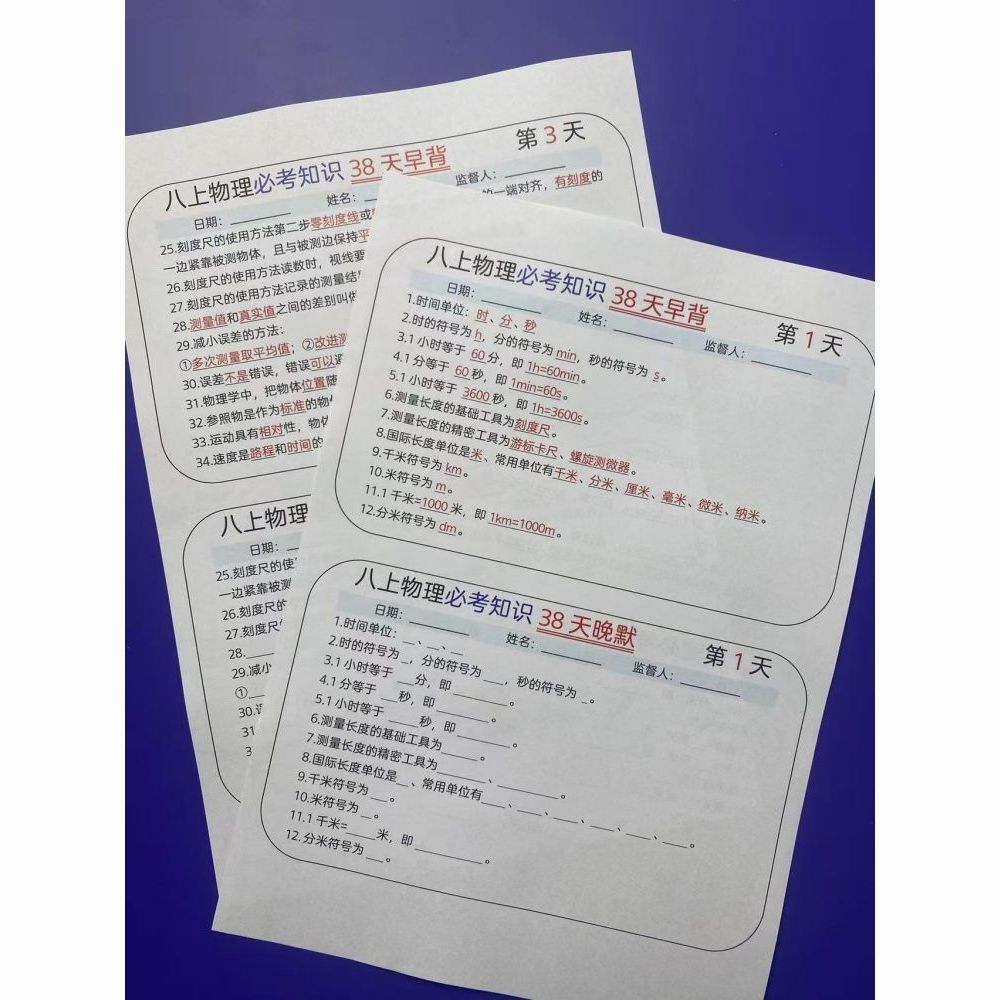 八上物理必考知识 38 天早背 第 3 天
日期： 姓名： 监督人：
25.刻度尺的使用方法第二步零刻度线或
的一端对齐，有刻度的
一边紧靠被测物体，且与被测边保持平
26.刻度尺的使用方法读数时，视线要
27.刻度尺的使用方法记录的测量结
28.测量值和真实值之间的差别叫
29.减小误差的方法：
①多次测量取平均值；②改进测
30.误差不是错误，错误可以
31.物理学中，把物体位置随
32.参照物是作为标准的物
33.运动具有相对性，物体
34.速度是路程和时间的
八上物理
日期：
25.刻度尺的使
一边紧靠被测
26.刻度尺的
27.刻度尺
28.
29.减小
①
30.
31
3
八上物理必考知识 38 天早背 第 1 天
日期： 姓名： 监督人：
1.时间单位：时、分、秒
2.时的符号为 h，分的符号为 min，秒的符号为 s。
3.1 小时等于 60 分，即 1h=60min。
4.1 分等于 60 秒，即 1min=60s。
5.1 小时等于 3600 秒，即 1h=3600s。
6.测量长度的基础工具为刻度尺。
7.测量长度的精密工具为游标卡尺、螺旋测微器。
8.国际长度单位是米、常用单位有千米、分米、厘米、毫米、微米、纳米。
9.千米符号为 km。
10.米符号为 m。
11.1 千米=1000 米，即 1km=1000m。
12.分米符号为 dm。
八上物理必考知识 38 天晚默 第 1 天
日期： 姓名： 监督人：
1.时间单位：__、__、__
2.时的符号为__，分的符号为___，秒的符号为 _。
3.1 小时等于 ___分，即 ________。
4.1 分等于 ___秒，即 ________。
5.1 小时等于 _____秒，即 ________。
6.测量长度的基础工具为______。
7.测量长度的精密工具为_______、_________。
8.国际长度单位是__、常用单位有___、___、___、___、___、___。
9.千米符号为 ___。
10.米符号为 __。
11.1 千米=_____米，即 __________。
12.分米符号为 ___。